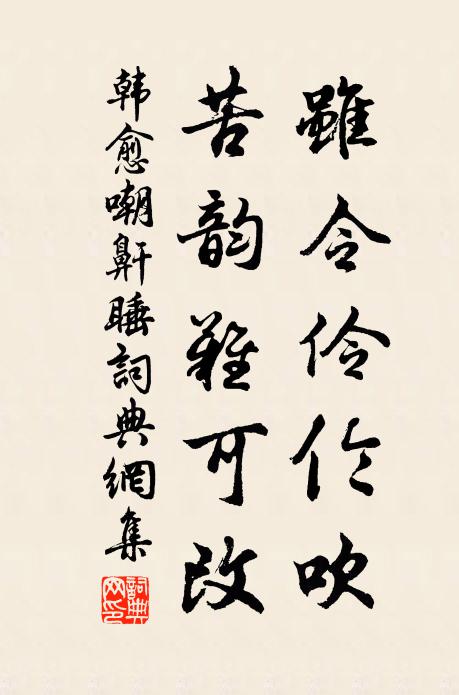 雖令伶伦吹
苦韵難可改
韩愈嘲鼾睡詞典網集
詞典网印